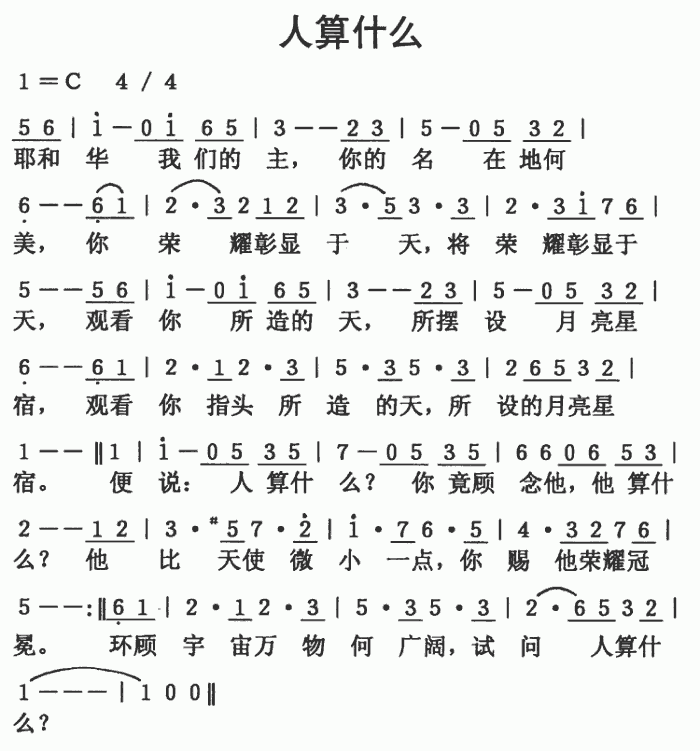 人算什么
1=C 4/4
5 6 | i - 0 i 6 5 | 3 - - 2 3 | 5 - 0 5 3 2 |
耶和 华 我 们的 主， 你的 名 在 地何
6 - - 6 1 | 2 · 3 2 1 2 | 3 · 5 3 · 3 | 2 · 3 i 7 6 |
美， 你 荣 耀彰显 于 天，将 荣 耀彰显于
5 - - 5 6 | i - 0 i 6 5 | 3 - - 2 3 | 5 - 0 5 3 2 |
天， 观看 你 所 造的 天， 所摆 设 月 亮星
6 - - 6 1 | 2 · 1 2 · 3 | 5 · 3 5 · 3 | 2 6 5 3 2 |
宿， 观看 你 指头 所 造 的天，所 设的月亮星
1 - - ‖ 1 | i - 0 5 3 5 | 7 - 0 5 3 5 | 6 6 0 6 5 3 |
宿。 便 说： 人 算什 么？ 你 竟顾 念他，他 算什
2 - - 1 2 | 3 · #5 7 · 2 | i · 7 6 · 5 | 4 · 3 2 7 6 |
么？ 他 比 天使 微 小 一点，你 赐 他荣耀冠
5 - - :‖ 6 1 | 2 · 1 2 · 3 | 5 · 3 5 · 3 | 2 · 6 5 3 2 |
冕。 环顾 宇 宙万 物 何 广阔，试 问 人算什
1 - - - | 1 0 0 ‖
么？